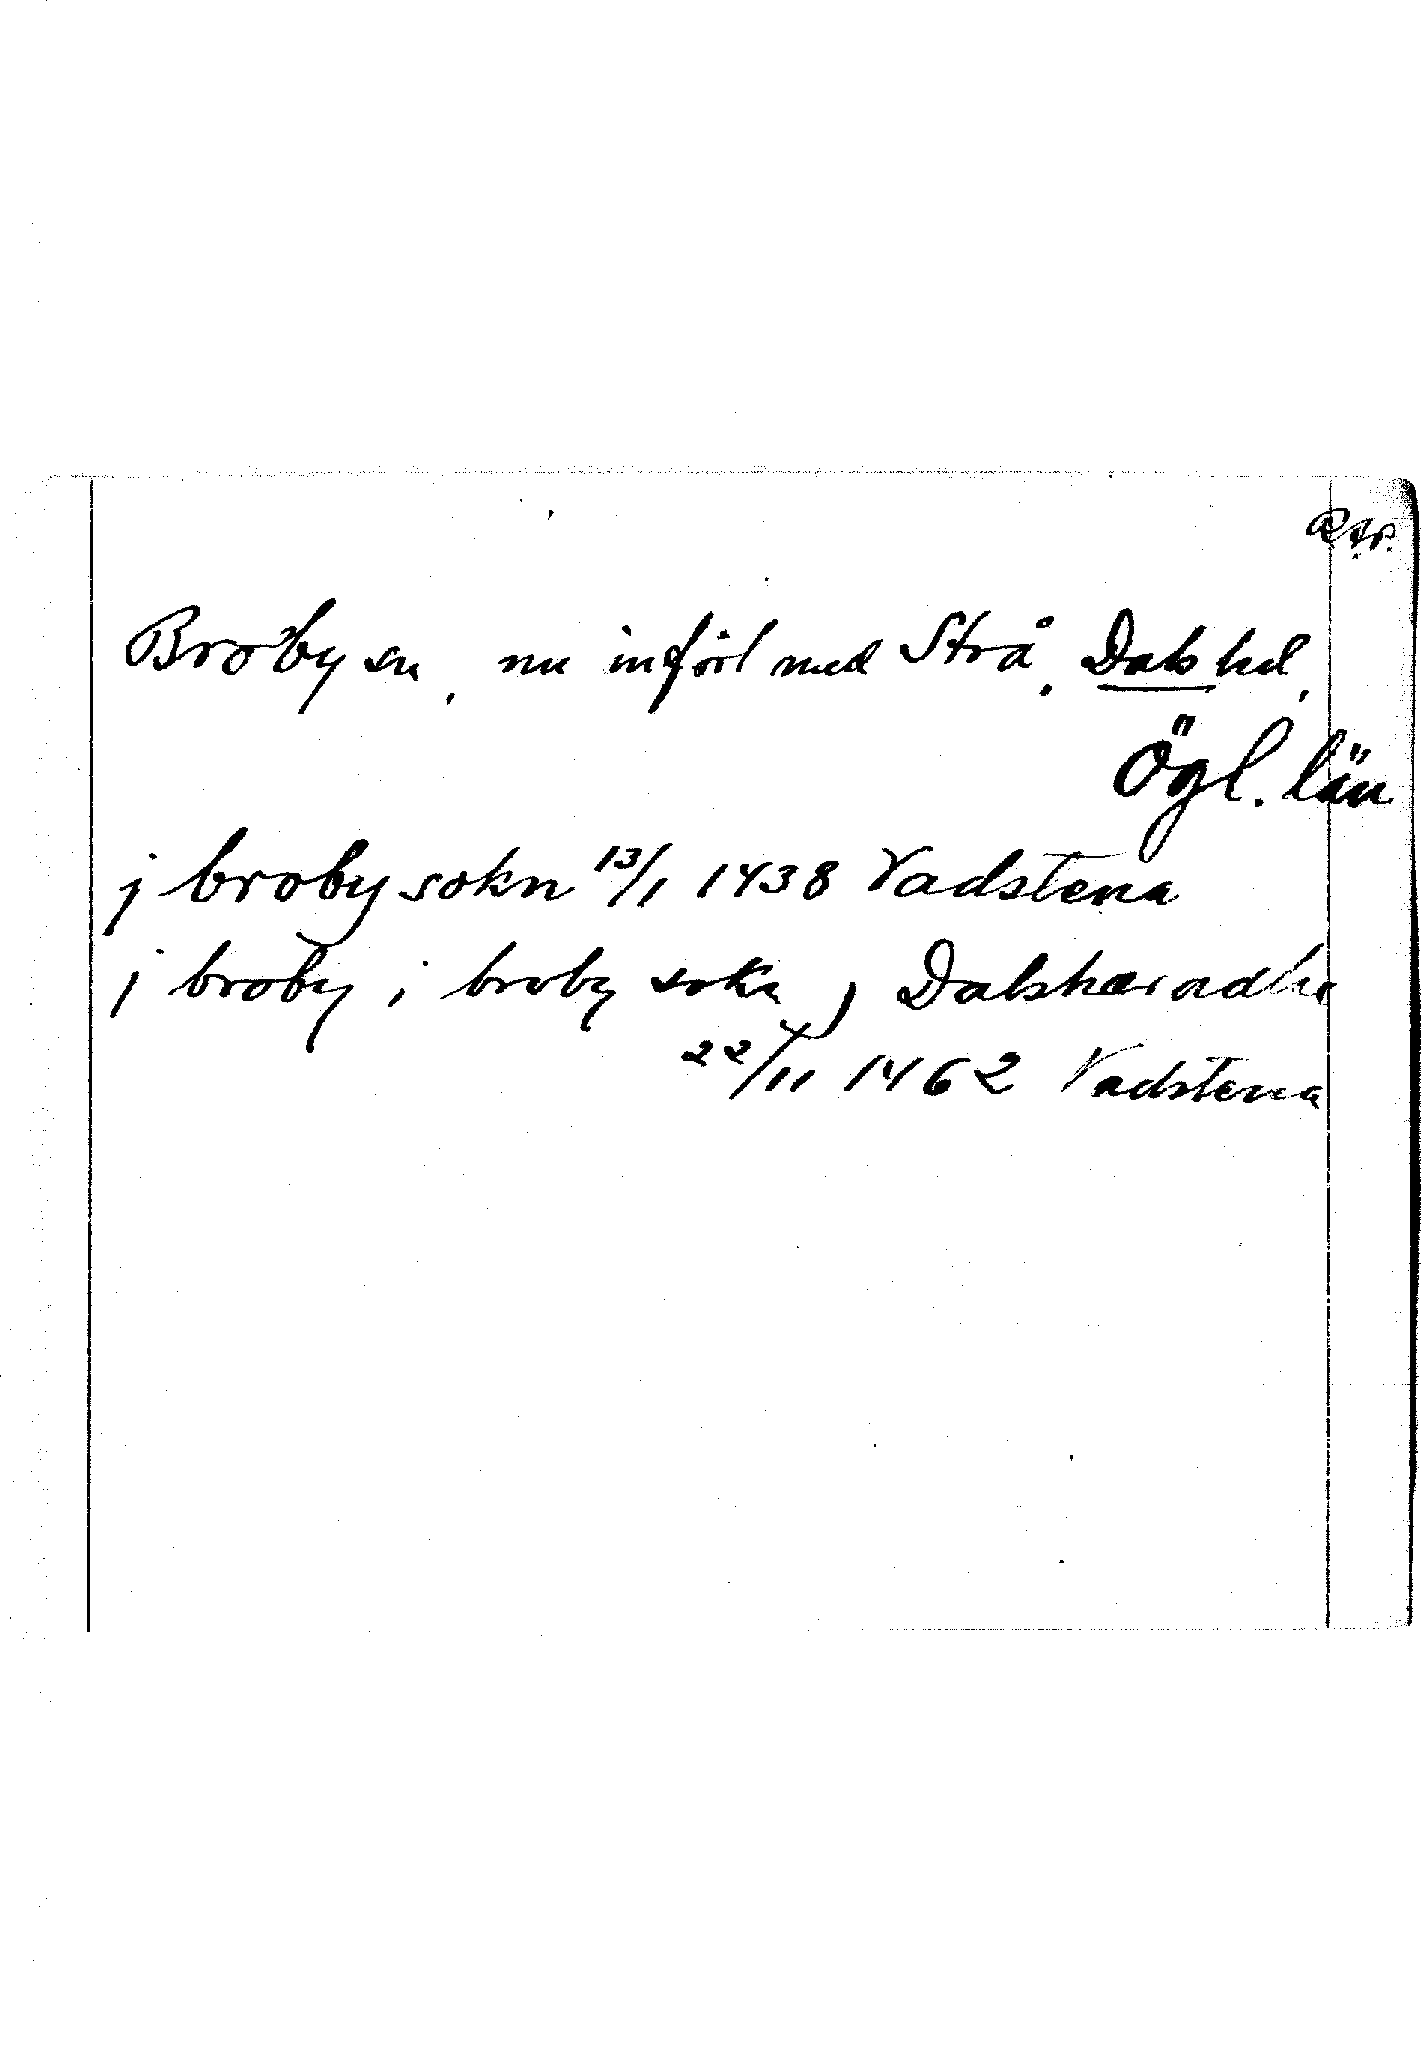 Broby sn, nu införl med Strå, Dals hd,
Ögl. län
j broby sokn 13/1 1438 Vadstena
j broby i broby sokn j Dalshæradhe
22/11 1462 Vadstena